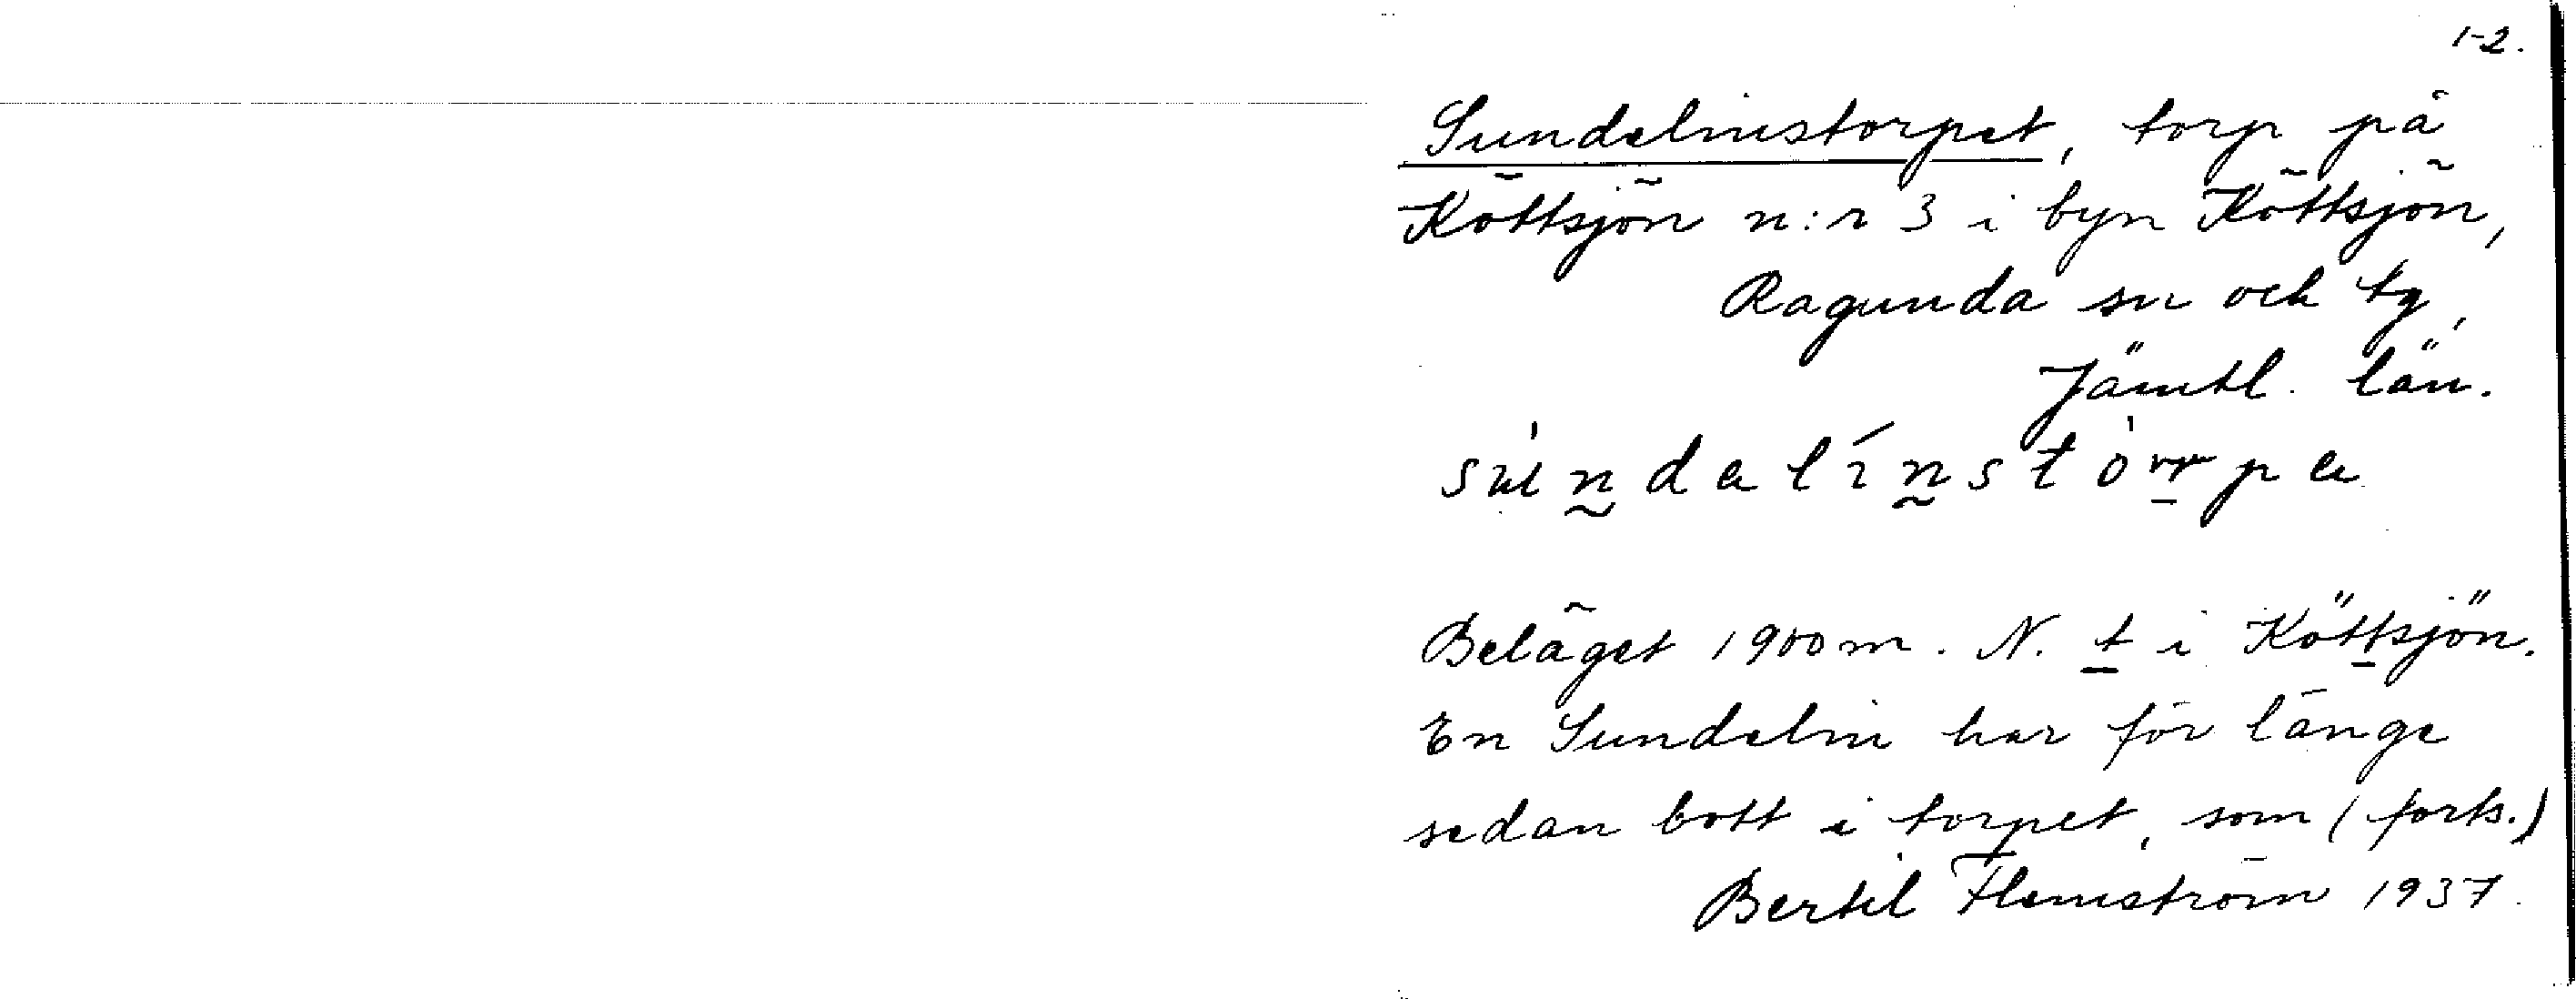 1-2.
Sundelinstorpet, torp på
Köttsjön n:r 3 i byn Köttsjön,
Ragunda sn och tg,
Jämtl. län.
Beläget 1900 m. N. t i Köttsjön.
En Sundelin har för länge
sedan bott i torpet, som (forts.)
Bertil Flemström 1937.